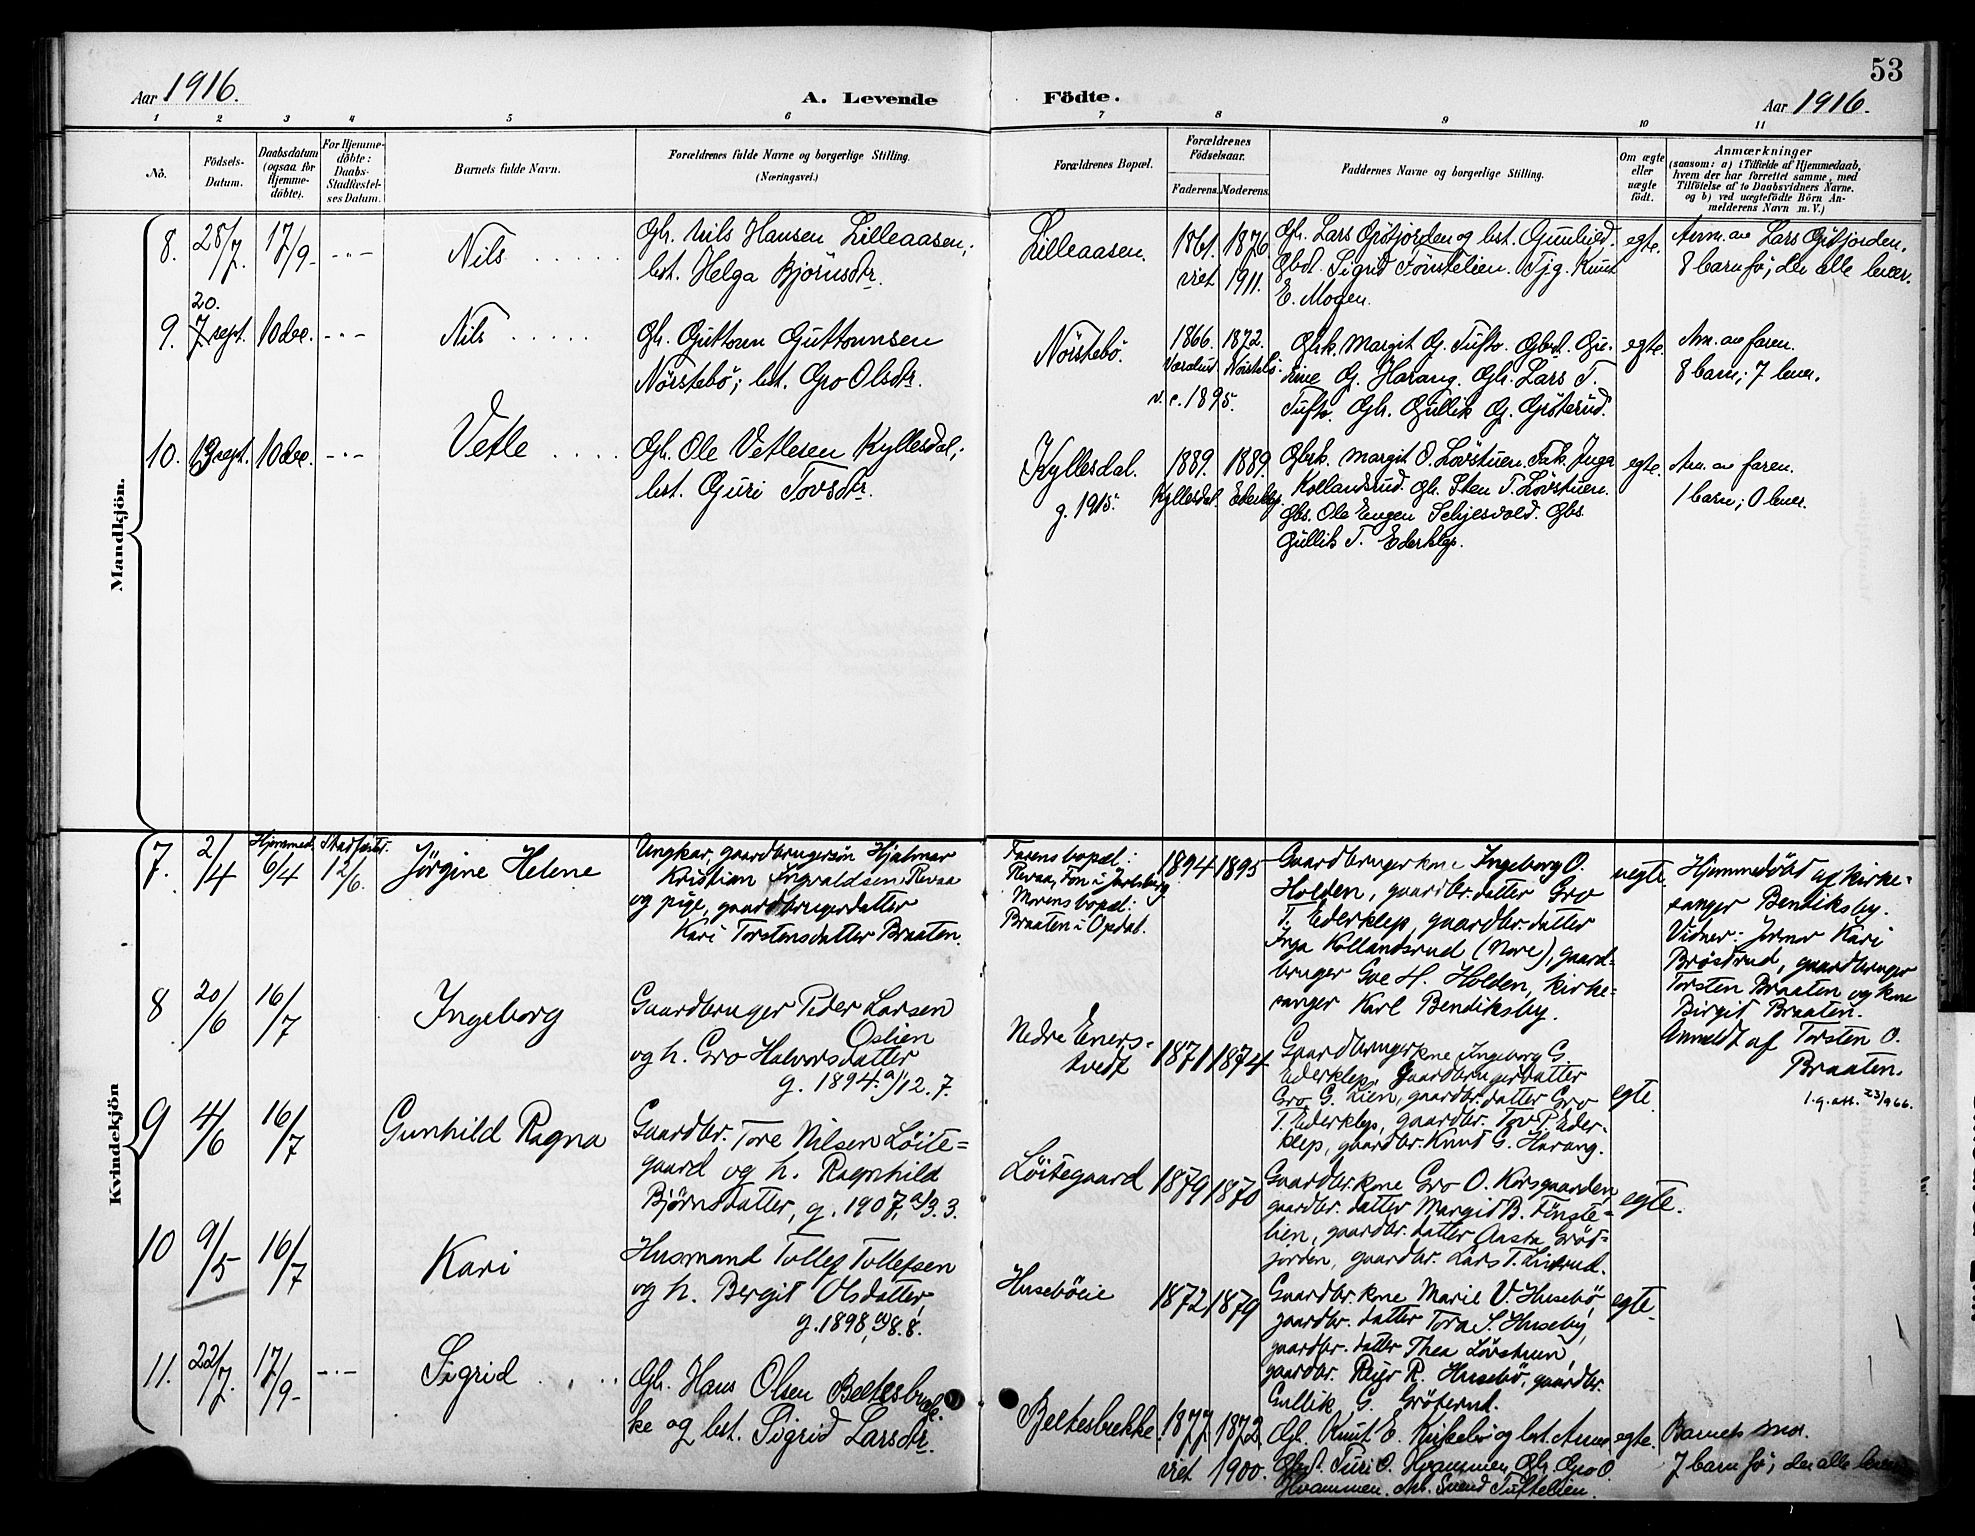 53
Aar 1916.
A. Levende
Födte.
Aar 1916.
1 2 3 4 5 6 7 8 9 10 11
No.
Födsels-
Datum.
Daabsdatum
(ogsaa for
Hjemme-
döbte).
For Hjemme-
döbte:
Daabs-
Stadfæstel-
ses Datum.
Barnets fulde Navn.
Forældrenes fulde Navne og borgerlige Stilling.
(Næringsvei.)
Forældrenes Bopæl.
Forældrenes
Födselsaar.
Faderens. Moderens.
Faddernes Navne og borgerlige Stilling.
Om ægte
eller
uægte
födt.
Anmærkninger
(saasom: a) i Tilfælde af Hjemmedaab,
hvem der har forrettet samme, med
Tilföielse af to Daabsvidners Navne,
og b) ved uægtefödte Börn An-
melderens Navn m. V.)
Mandkjön.
8. 28/7. 17/9. -"- Nils
Gb. Nils Hansen Lilleaasen;
hst. Helga Björnsdtr.
Lilleaasen.
1861. 1876
viet 1911.
Gb. Lars Grötjorden og hst. Gunhild.
Gbdt. Sigrid Fönstelien. Tjg. Knut
E. Mogen.
egte.
Anm. av Lars Grötjorden.
8 barn fö; der alle lever.
9. 20. 7 sept. 10 dec. -"- Nils
Gb. Guttorm Guttormsen
Nörstebö; hst. Gro Olsdtr.
Nörstebö.
1866. 1872.
Nörstebö.
v. c. 1895.
Gbrk. Margit G. Tufto. Gbdt. Gu-
rine G. Harang. Gb. Lars T.
Tufto. Gb. Gullik G. Gröterud.
egte.
Anm. av faren.
8 barn; 7 lever.
10. 13 sept. 10 dec. -"- Vetle
Gb. Ole Vetlesen Kyllesdal;
hst. Guri Tovsdtr.
Kyllesdal.
g. 1915.
1889. 1889.
Kyllesdal. Ederklep.
Gbrk. Margit O. Lövstuen. Frk. Inga
Kollandsrud. Gb. Sten T. Lövstuen.
Gbs. Ole Engen Schjesvold. Gbs.
Gullik T. Ederklep.
egte.
Anm. av faren.
1 barn; 0 lever.
Kvindekjön
7. 2/4 Hjemmed. 9/4 Stadfæstet. 12/6. Jörgine Helene
Ungkar, gaardbrugersön Hjalmar
Kristian Ingvaldsen Revaa
og pige, gaardbrugerdatter
Kari Torstensdatter Braaten.
Farens bopæl:
Revaa, Fon i Jarlsberg
Morens bopæl:
Braaten i Opdal.
1894 1895
Gaardbrugerkone Ingeborg O.
Holden, gaardbr. datter Gro
T. Ederklep, gaardbr. datter
Inga Kollandsrud (Nore), gaard-
bruger Goe H. Holden, kirke-
sanger Karl Bendiksby.
uegte.
Hjemmedöbt af kirke-
sanger Bendiksby.
Vidner: Jormor Kari
Bröstrud, gaardbruger
Torsten Braaten og kone
Birgit Braaten.
Anmeldt af Torsten O.
Braaten.
1.g. att. 23/9 66.
8 20/6 16/7 Ingeborg
Gaardbruger Peder Larsen
Oslien
og h. Gro Halvorsdatter
g. 1894. a) 12. 7.
Nedre Eners-
tvedt
1871 1874
Gaardbrugerkone Ingeborg G.
Ederklep, gaardbrugerdatter
Gro G. Lien, gaardbr. datter Gro
T. Ederklep, gaardbr. Tov P. Eder-
klep, gaardbr. Knut G. Harang.
egte.
9 4/6 16/7 Gunhild Ragna
Gaardbr. Tore Nilsen Löite-
gaard og h. Ragnhild
Björnsdatter, g. 1907, a) 3. 3.
Löitegaard
1879 1870
Gaardbr. kone Gro O. Korsgaarden,
gaardbr. datter Margit B. Fönste-
lien, gaardbr. datter Aasta Gröt-
jorden, gaardbr. Lars T. Liverud.
egte.
10 9/5 16/7 Kari
Husmand Tollef Tollefsen
og h. Bergit Olsdatter,
g. 1898, a) 8. 8.
Huseböeie
1872 1879
Gaardbr. kone Marit V. Husebö,
gaardbr. datter Tora S. Huseby,
gaardbr. datter Thea Lövstuen,
gaardbr. R. Husebö, gaardbr.
Gullik G. Gröterud.
egte.
11. 22/7. 17/9. -"- Sigrid
Gb. Hans Olsen Beltesbræk-
ke og hst. Sigrid Larsdtr.
Beltesbrekke.
1877. 1872.
viet 1900.
Gb. Knut E. og hst. Anne
Gbdt. Turi O. Hvammen. Gb. Gro O.
Hvammen. Svend Tuftelien.
egte.
Barnets mor.
7 barn fö; der alle lever.